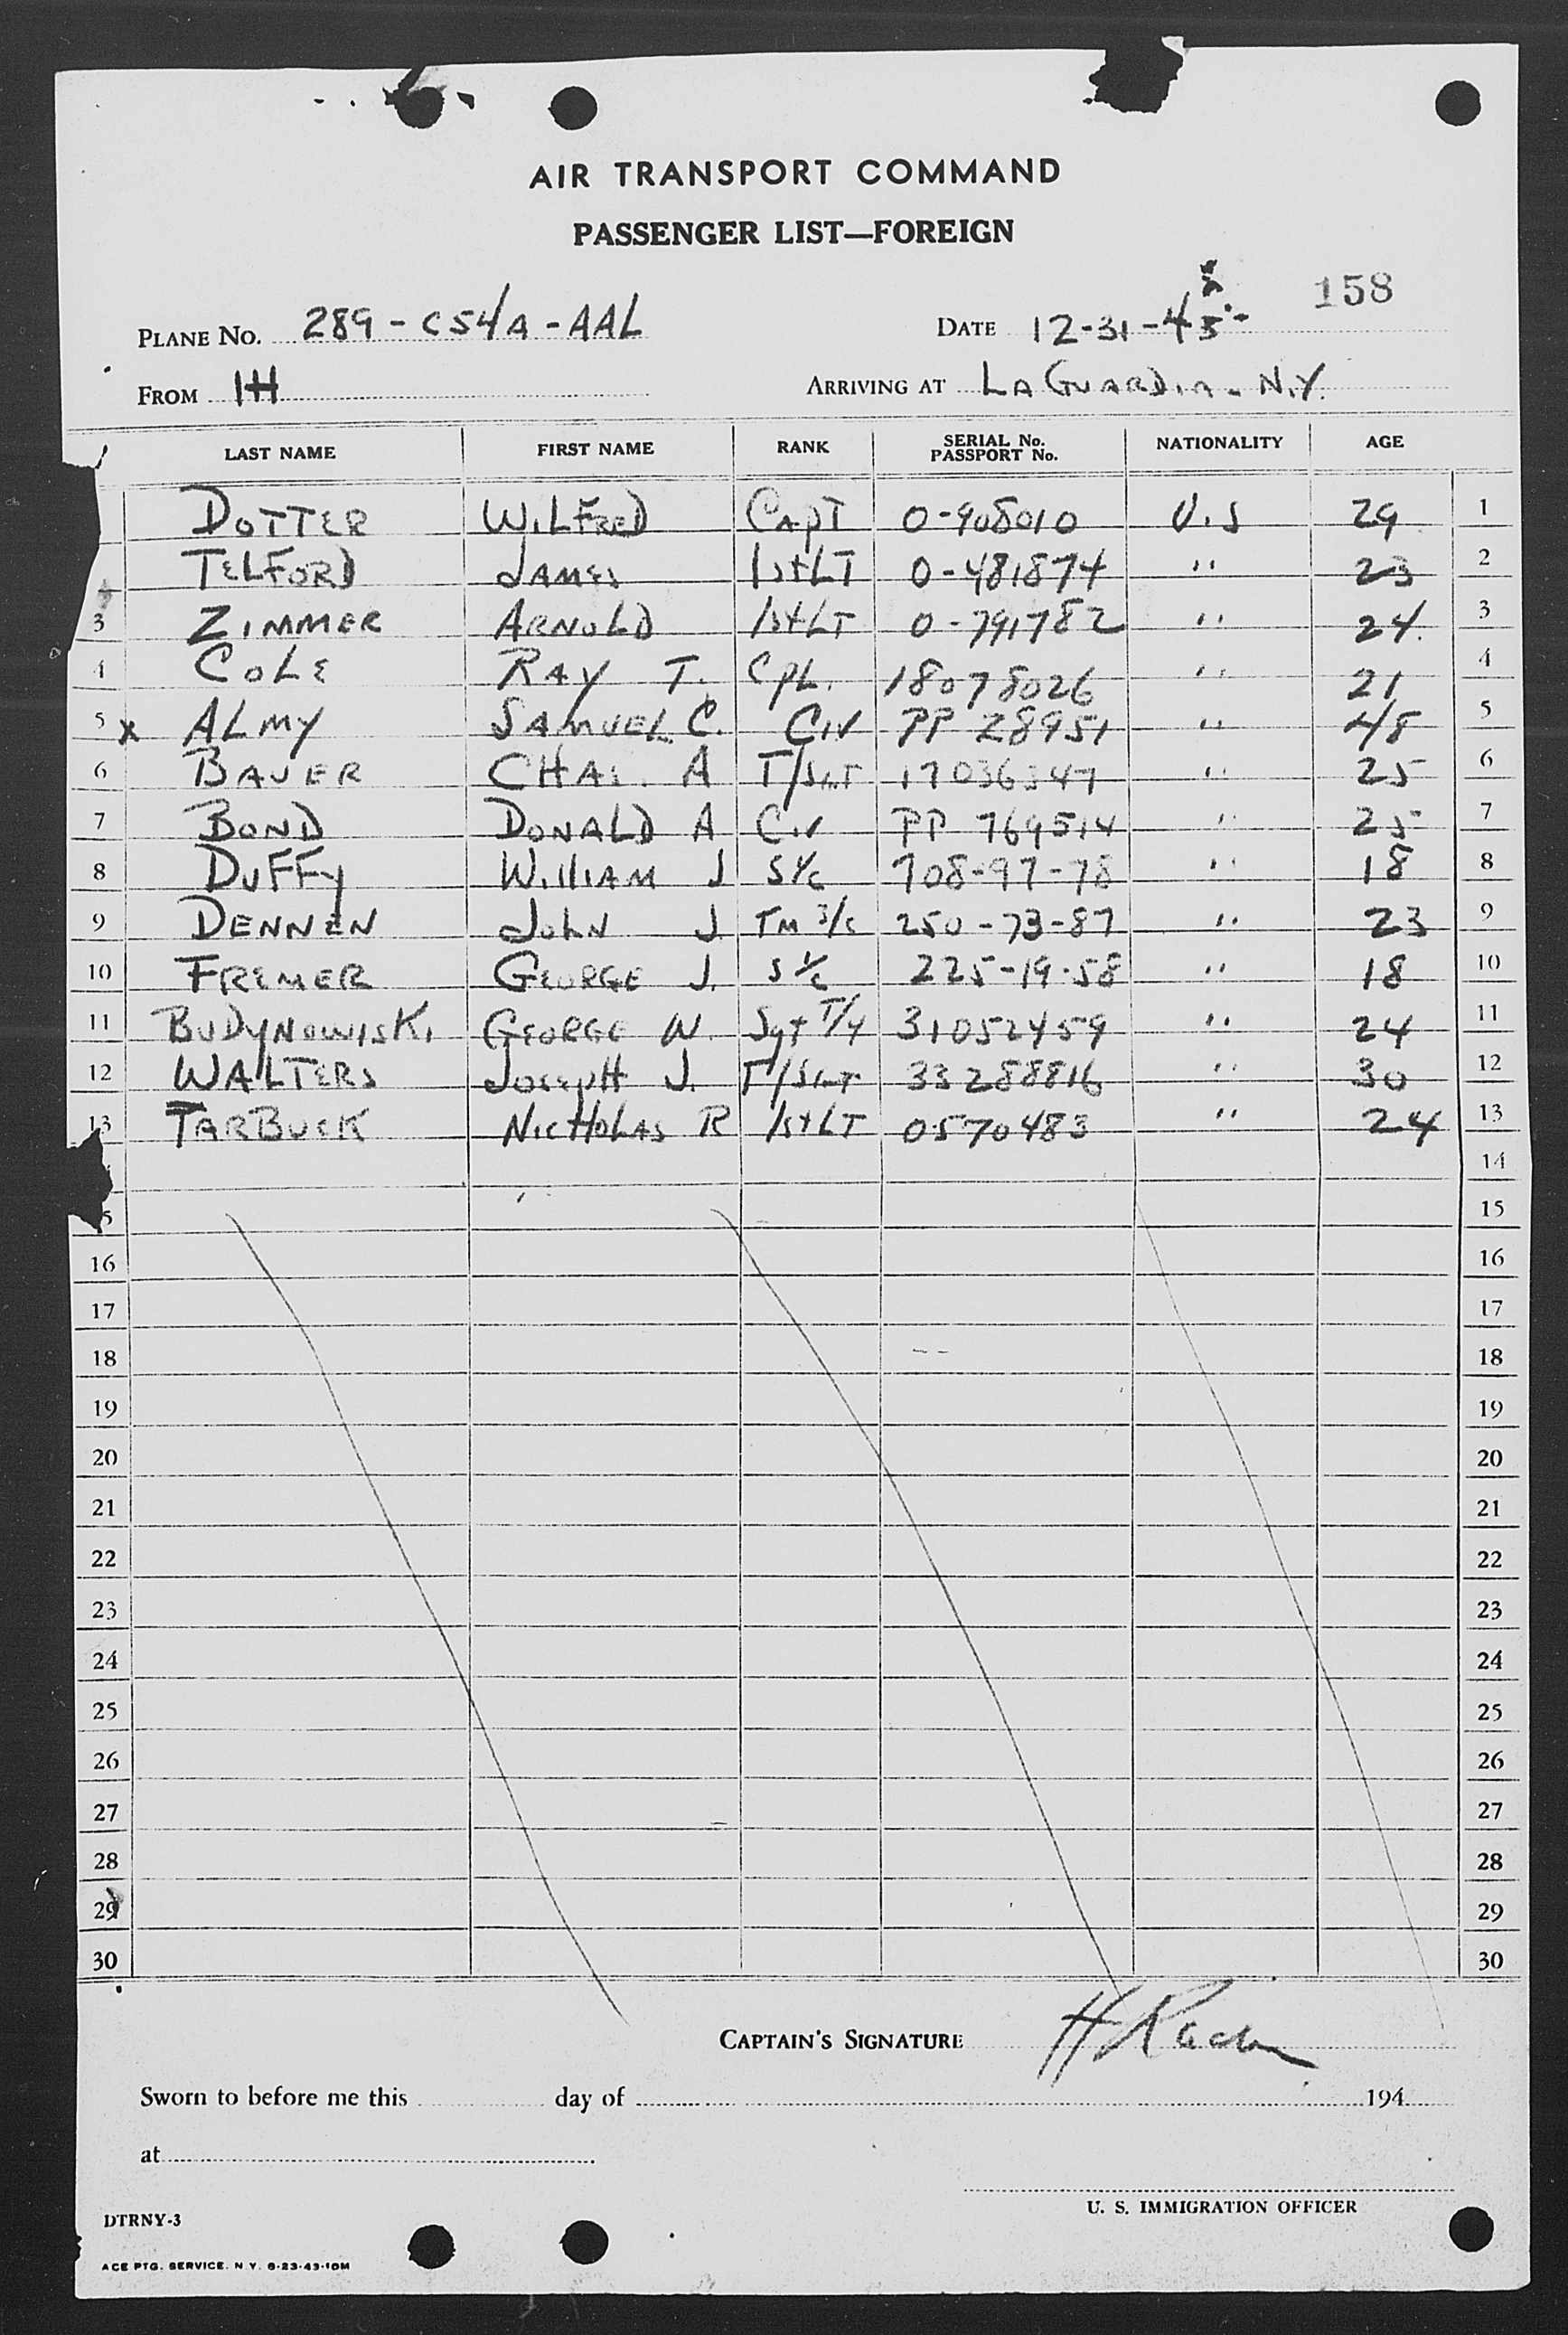 AIR TRANSPORT COMMAND
PASSENGER LIST—FOREIGN
158
PLANE No. 289 - C54A - AAL DATE 12-31-45
FROM IH ARRIVING AT LA GUARDIA - N.Y.
LAST NAME FIRST NAME RANK SERIAL No. PASSPORT No. NATIONALITY AGE
DOTTER WILFRED CAPT 0-908010 U.S 29 1
TELFORD JAMES 1st LT 0-481874 " 23 2
3 ZIMMER ARNOLD 1st LT 0-791782 " 24 3
4 COLE RAY T. CPL. 18078026 " 21 4
5 x ALMY SAMUEL C. CIV PP 28951 " 48 5
6 BAUER CHAS. A T/SGT 17036347 " 25 6
7 BOND DONALD A CIV PP 769514 " 25 7
8 DUFFY WILLIAM J S 1/c 708-97-78 " 18 8
9 DENNEN JOHN J TM 3/c 250-73-87 " 23 9
10 FREMER GEORGE J. S 1/c 225-19-58 " 18 10
11 BUDYNOWISKI GEORGE W. Sgt T/4 31052459 " 24 11
12 WALTERS JOSEPH J. T/SGT 33288816 " 30 12
13 TARBUCK NICTHOLAS R 1st LT 0570483 " 24 13
14
15
16 16
17 17
18 18
19 19
20 20
21 21
22 22
23 23
24 24
25 25
26 26
27 27
28 28
29 29
30 30
CAPTAIN'S SIGNATURE
Sworn to before me this day of 194
at
U. S. IMMIGRATION OFFICER
DTRNY-3
ACE PTG. SERVICE. N.Y. 6-23-43-10M